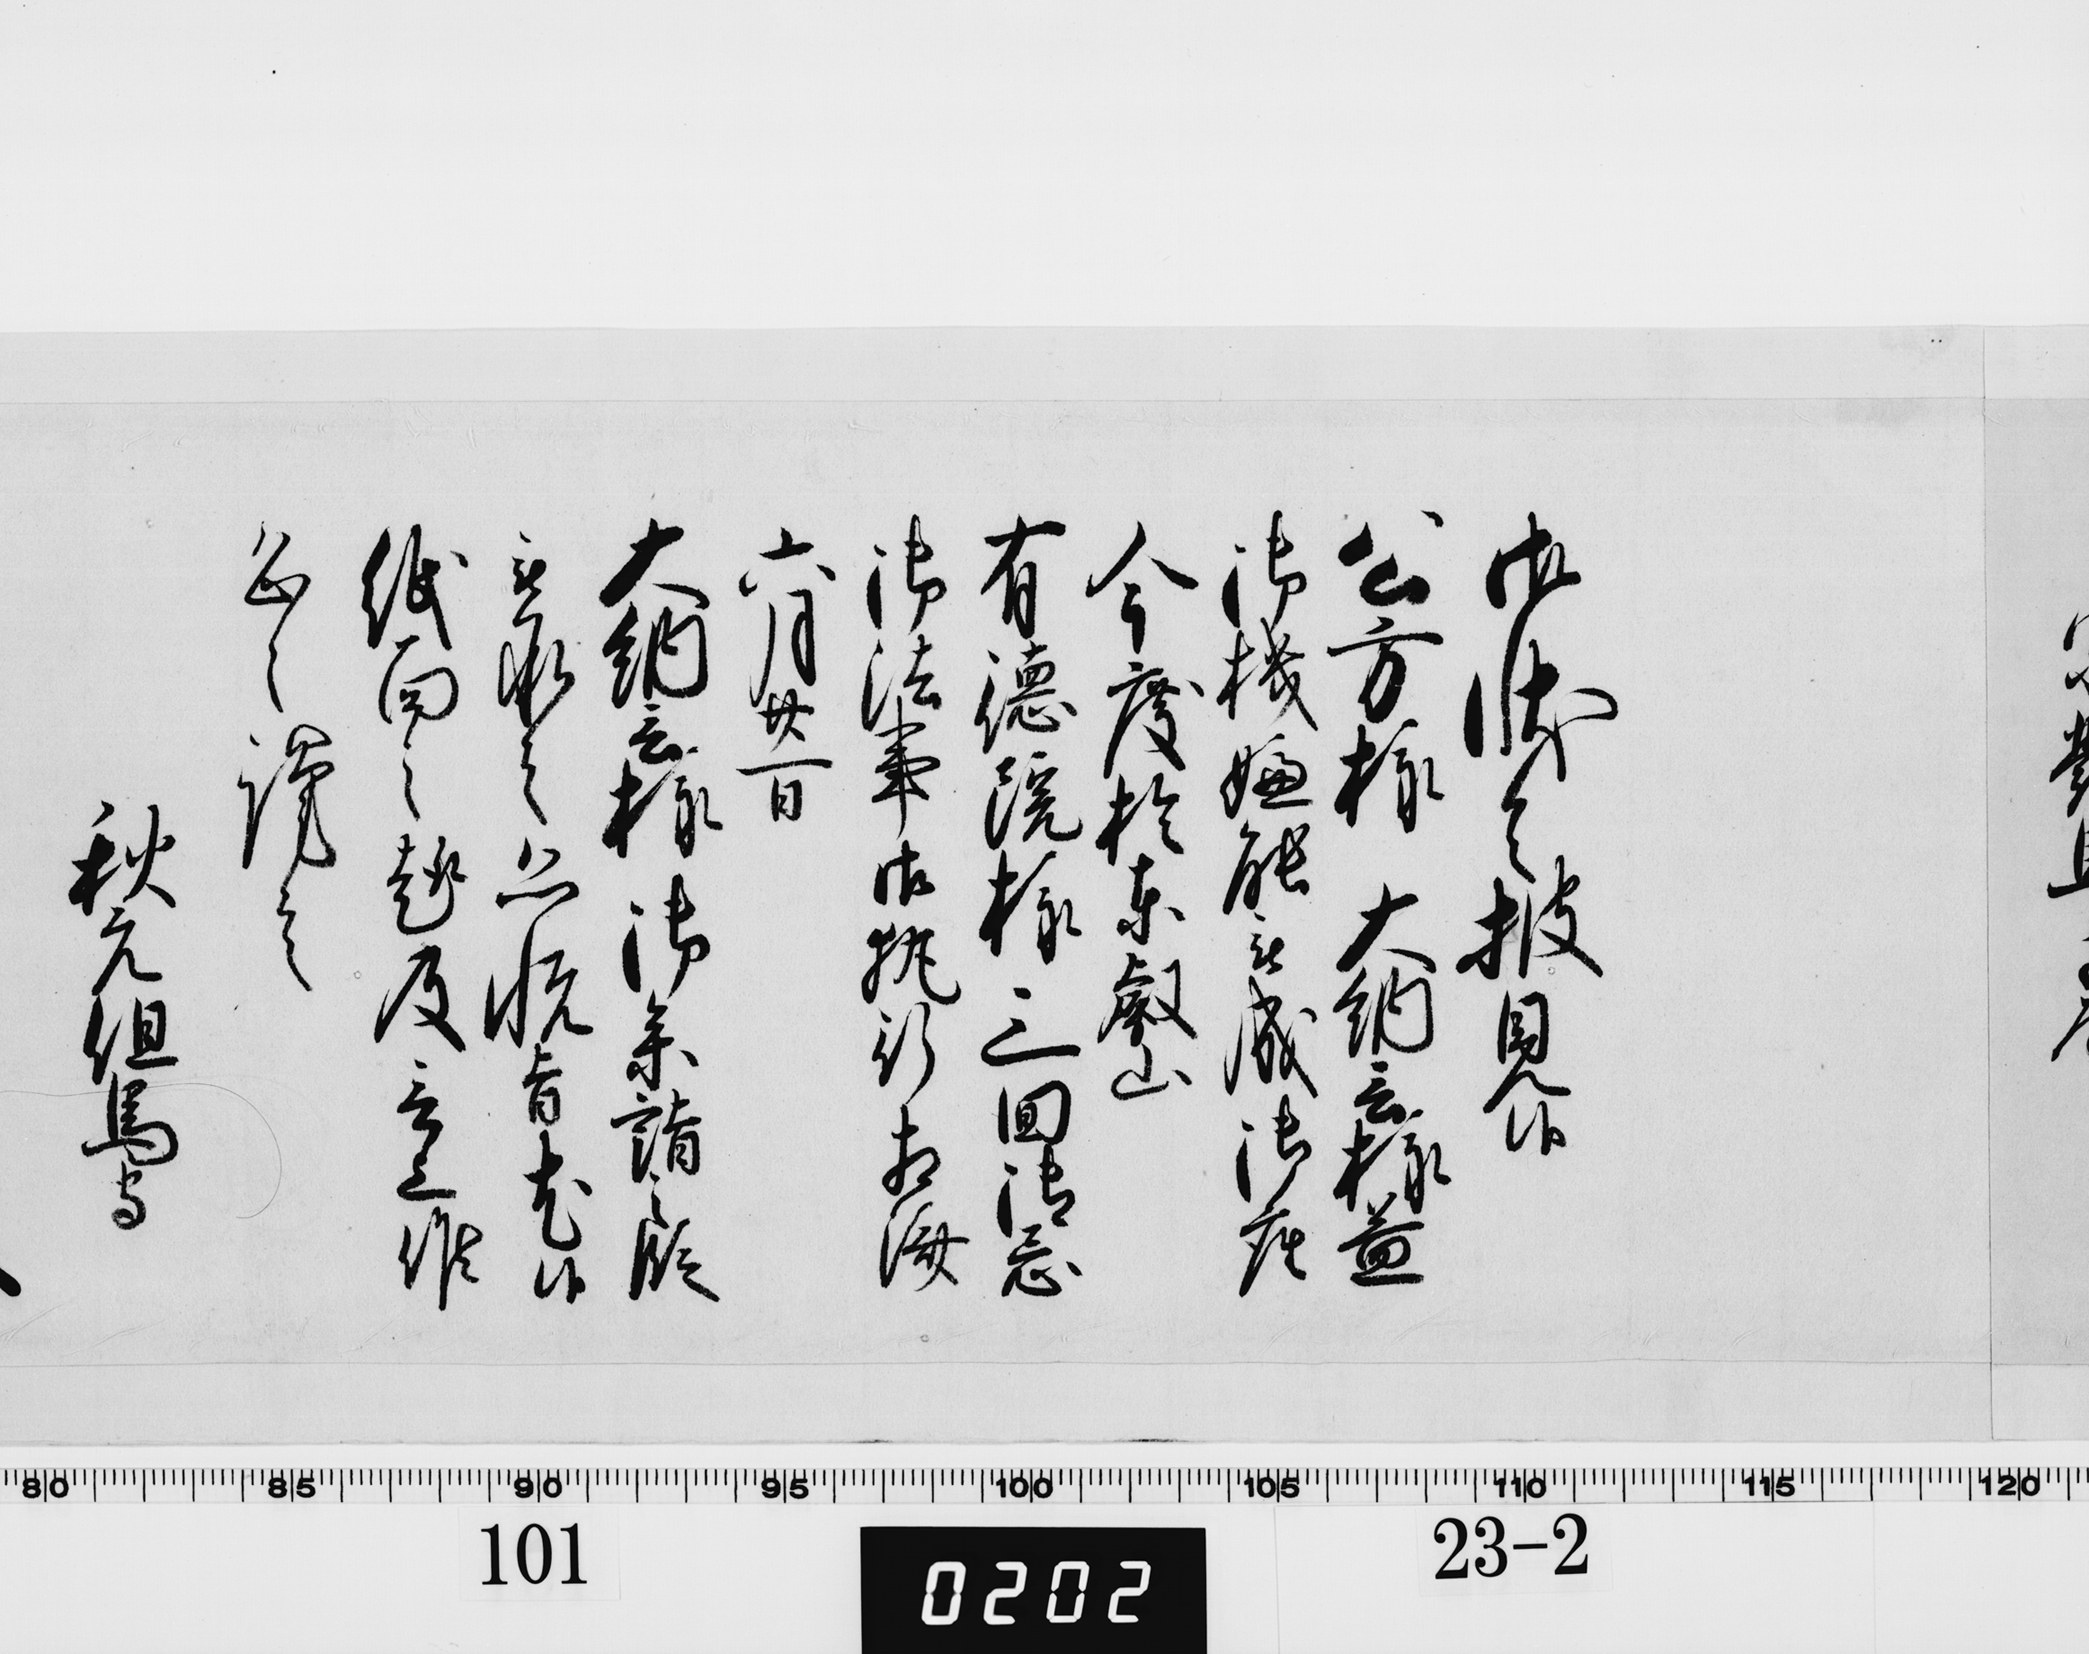 御状令披見候
公方様 大納言様益
御機嫌能被成御座
今度於東叡山
有徳院様三回御忌
御法事御執行相済
六月廿一日
大納言様御参詣之段
被承之恐悦旨尤候
紙面之趣及言上候
恐々謹言
秋元但馬守
80 85 90 95 100 105 110 115 120
101
0202
23-2